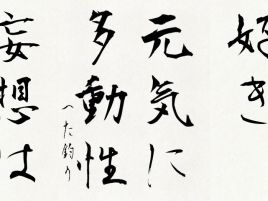 好き
元気に
多動性
へた釣り
妄想は